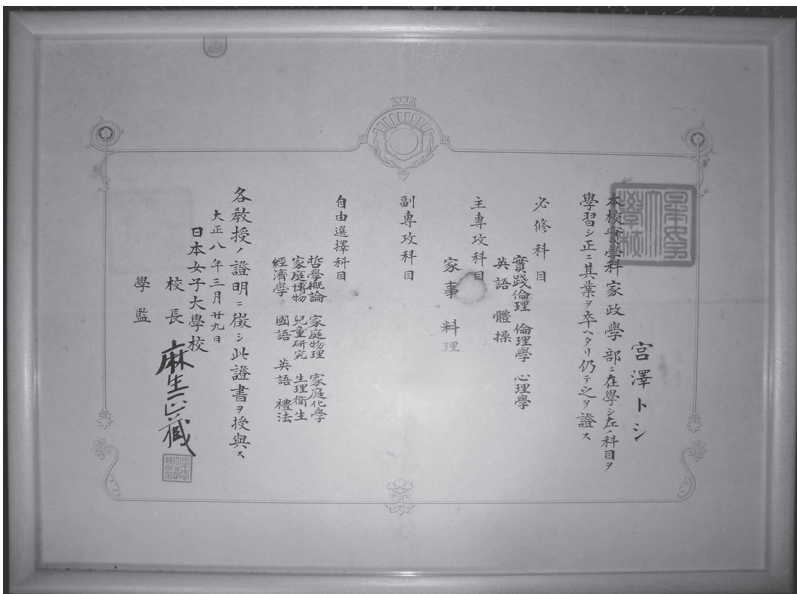 宮澤トシ
本校 學科家政學部ニ在學シ左ノ科目ヲ
學習シ正ニ其業ヲ卒ヘタリ仍テ之ヲ證ス
必修科目
實踐倫理 倫理學 心理學
英語 體操
主專攻科目
家事 料理
副專攻科目
自由選擇科目
哲學概論 家庭物理 家庭化學
家庭博物 兒童研究 生理衞生
經濟學 國語 英語 禮法
各教授ノ證明ニ徴シ此證書ヲ授與ス
大正八年三月廿九日
日本女子大學校
校長
學監
麻生正藏